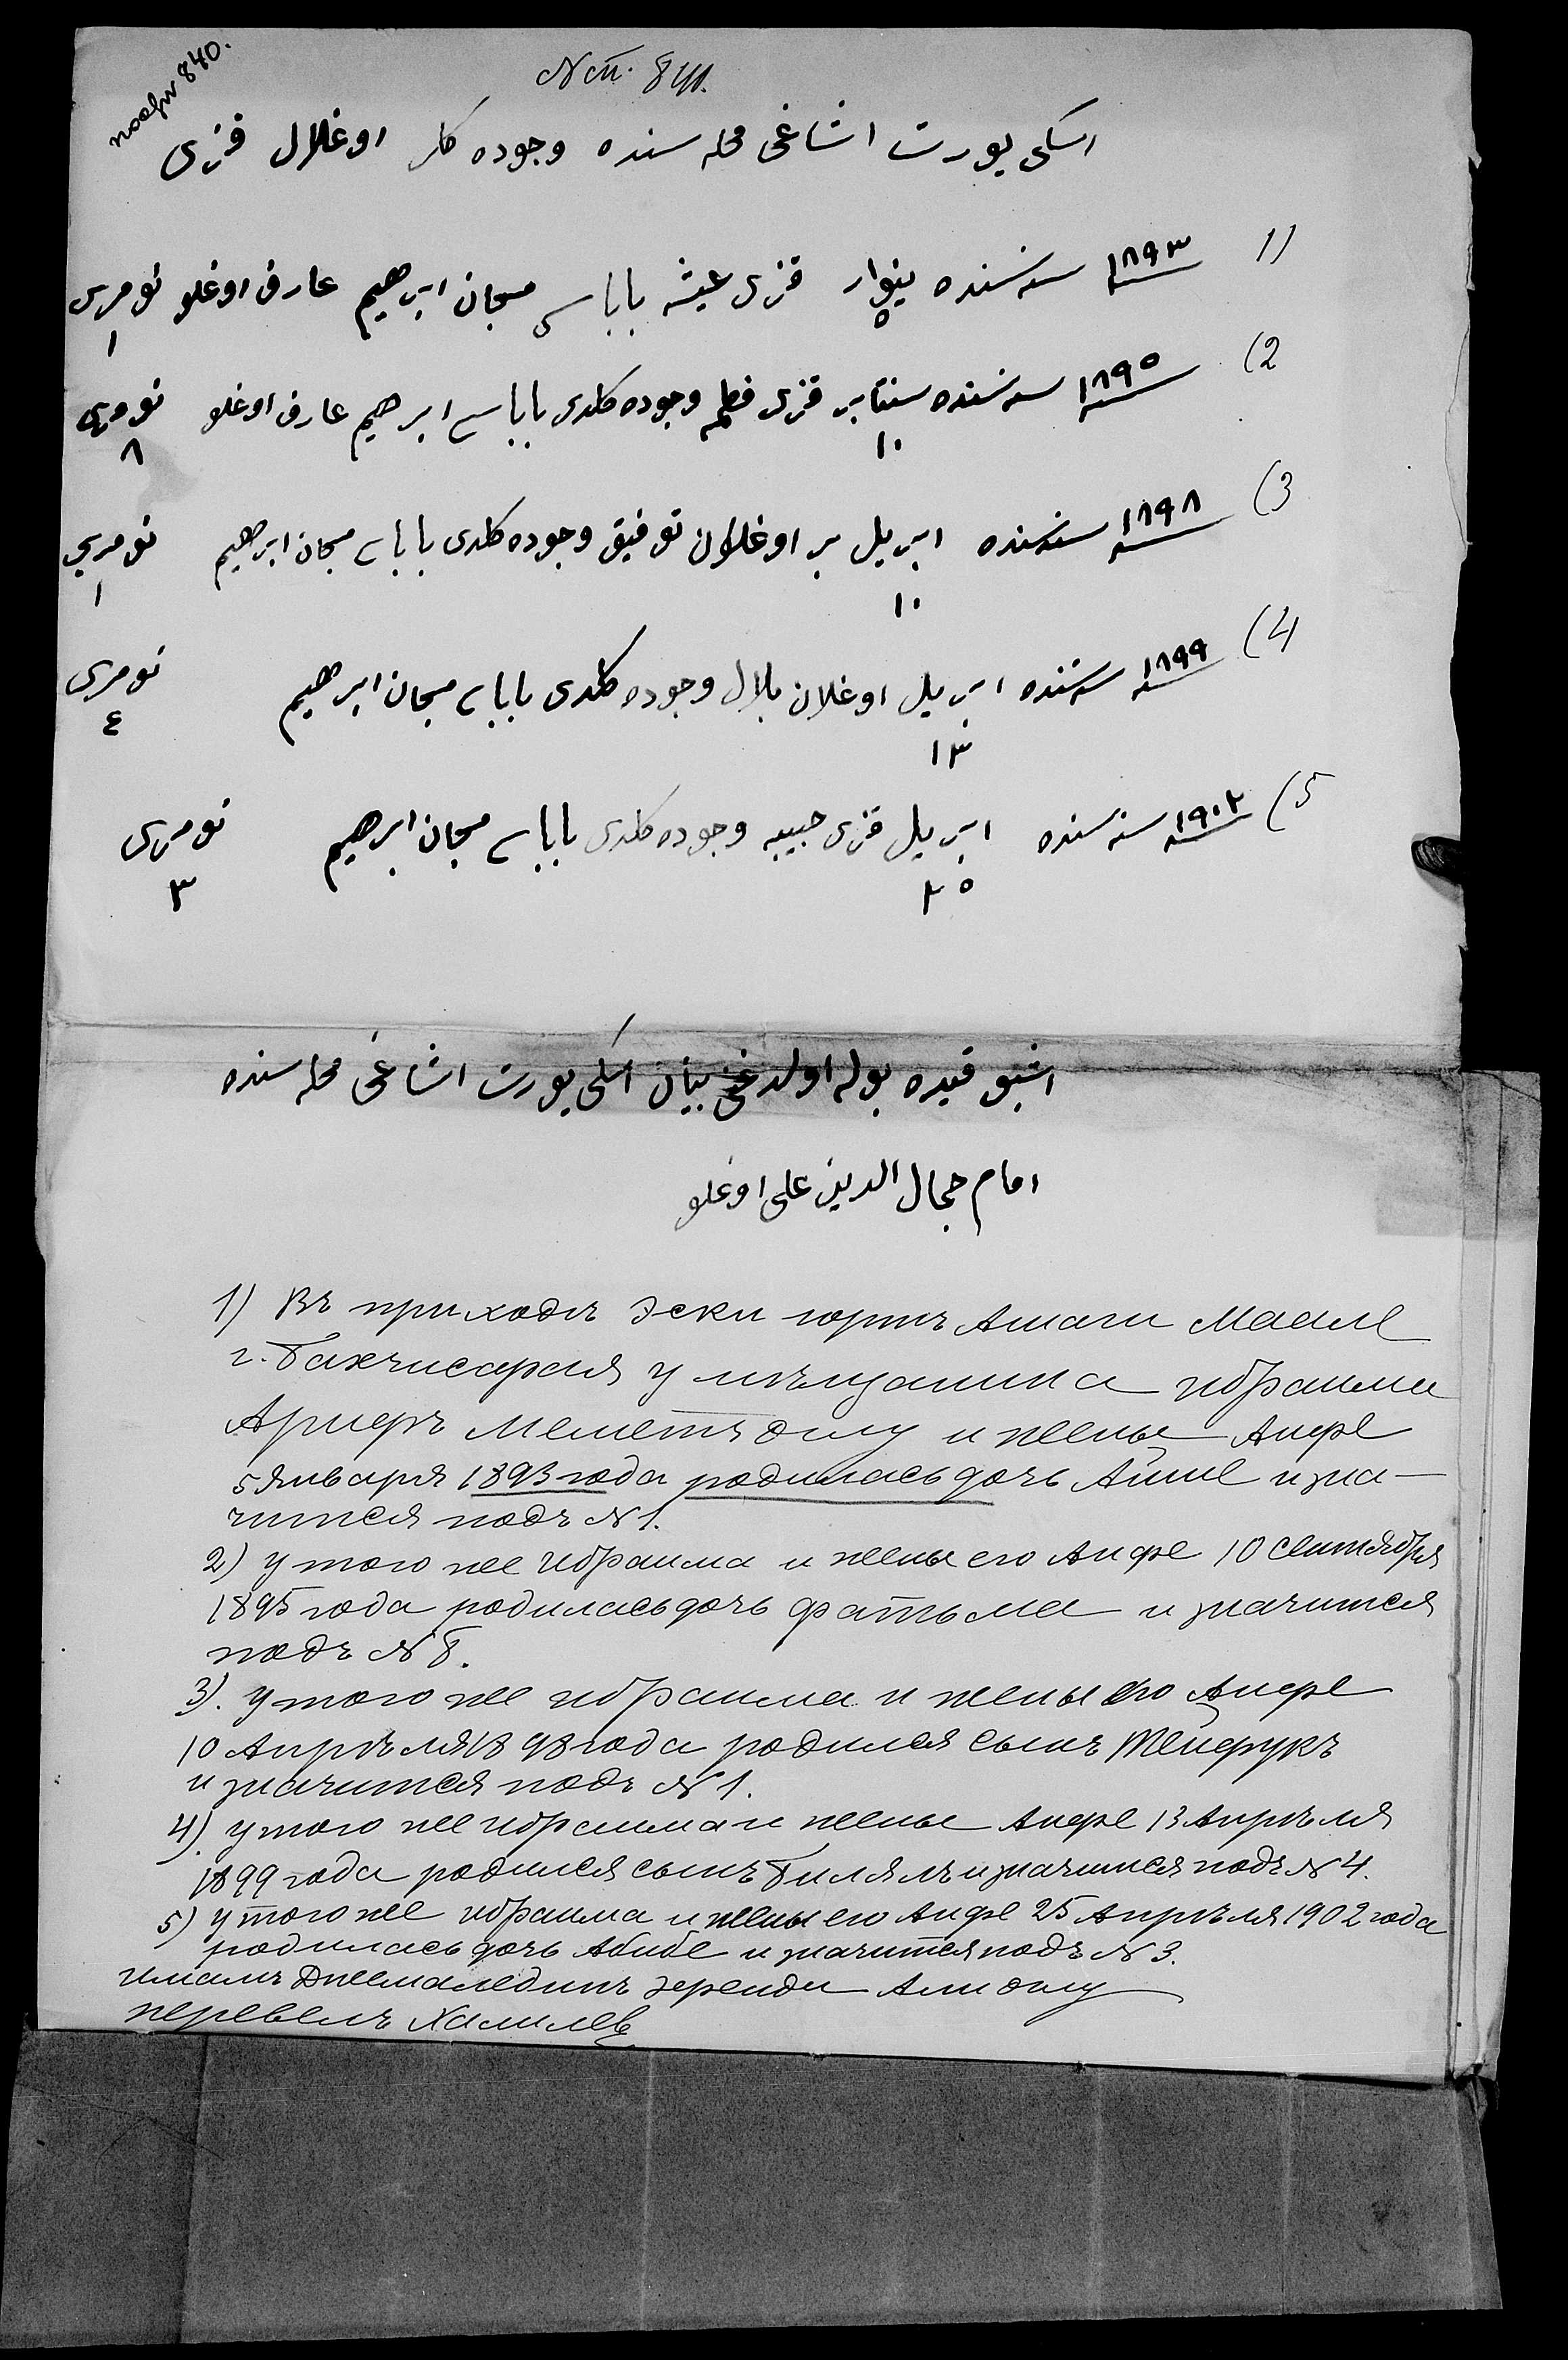 840.
Ст. 841.
اسكى يورت اشاغى محله سنده وجوده كلر اوغلال قزى
1) ١٨٩٣ سنه سنده ينوار ٥ قزى عيشه باباسى مجان ابرهيم عارف اوغلو نومرى ١
2) ١٨٩٥ سنه سنده سنتابر ١٠ قزى فطمه وجوده كلدى باباسى ابرهيم عارف اوغلو نومرى ٨
3) ١٨٩٨ سنه سنده ابريل ١٠ بر اوغلان توفيق وجوده كلدى باباسى مجان ابرهيم نومرى ١
4) ١٨٩٩ سنه سنده ابريل ١٣ اوغلان بلال وجوده كلدى باباسى مجان ابرهيم نومرى ٤
5) ١٩٠٢ سنه سنده ابريل ٢٥ قزى حبيبه وجوده كلدى باباسى مجان ابرهيم نومرى ٣
اشبو قيده بوله اولدغى بيان اسكى يورت اشاغى محله سنده
امام جمال الدين على اوغلو
1) Въ приходѣ Эски юртъ Ашаги Маале
г. Бахчисарая у мѣщанина Ибраима
Арифъ Меметъ оглу и жены Анфе
5 января 1893 года родилась дочь Айше и зна-
чится подъ N 1.
2) у того же Ибраима и жены его Анфе 10 сентября
1895 года родилась дочь Фатьма и значится
подъ N 8.
3). у того же Ибраима и жены его Анфе
10 Апрѣля 1898 года родился сынъ Тейфукъ
и значится подъ N 1.
4). у того же Ибраима и жены Анфе 13 Апрѣля
1899 года родился сынъ Билялъ и значится подъ N 4.
5) у того же Ибраима и жены его Анфе 25 Апрѣля 1902 года
родилась дочь Абибе и значится подъ N 3.
Имамъ Джемалединъ эфенди Али оглу
перевелъ Халилев